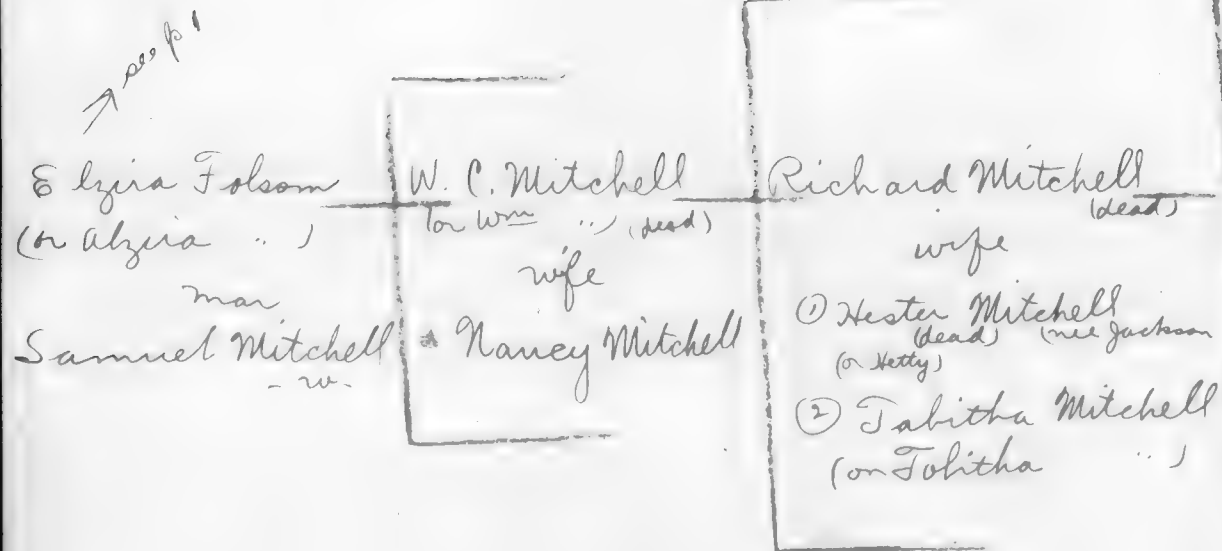 see p 1
Elzira Folsom
(or Alzira " )
mar
Samuel Mitchell
- w -
W. C. Mitchell
(or Wm " ) (dead)
wife
* Nancy Mitchell
Richard Mitchell
(dead)
wife
① Hester Mitchell
(dead) (nee Jackson
(or Hetty)
② Tabitha Mitchell
(or Tobitha " )